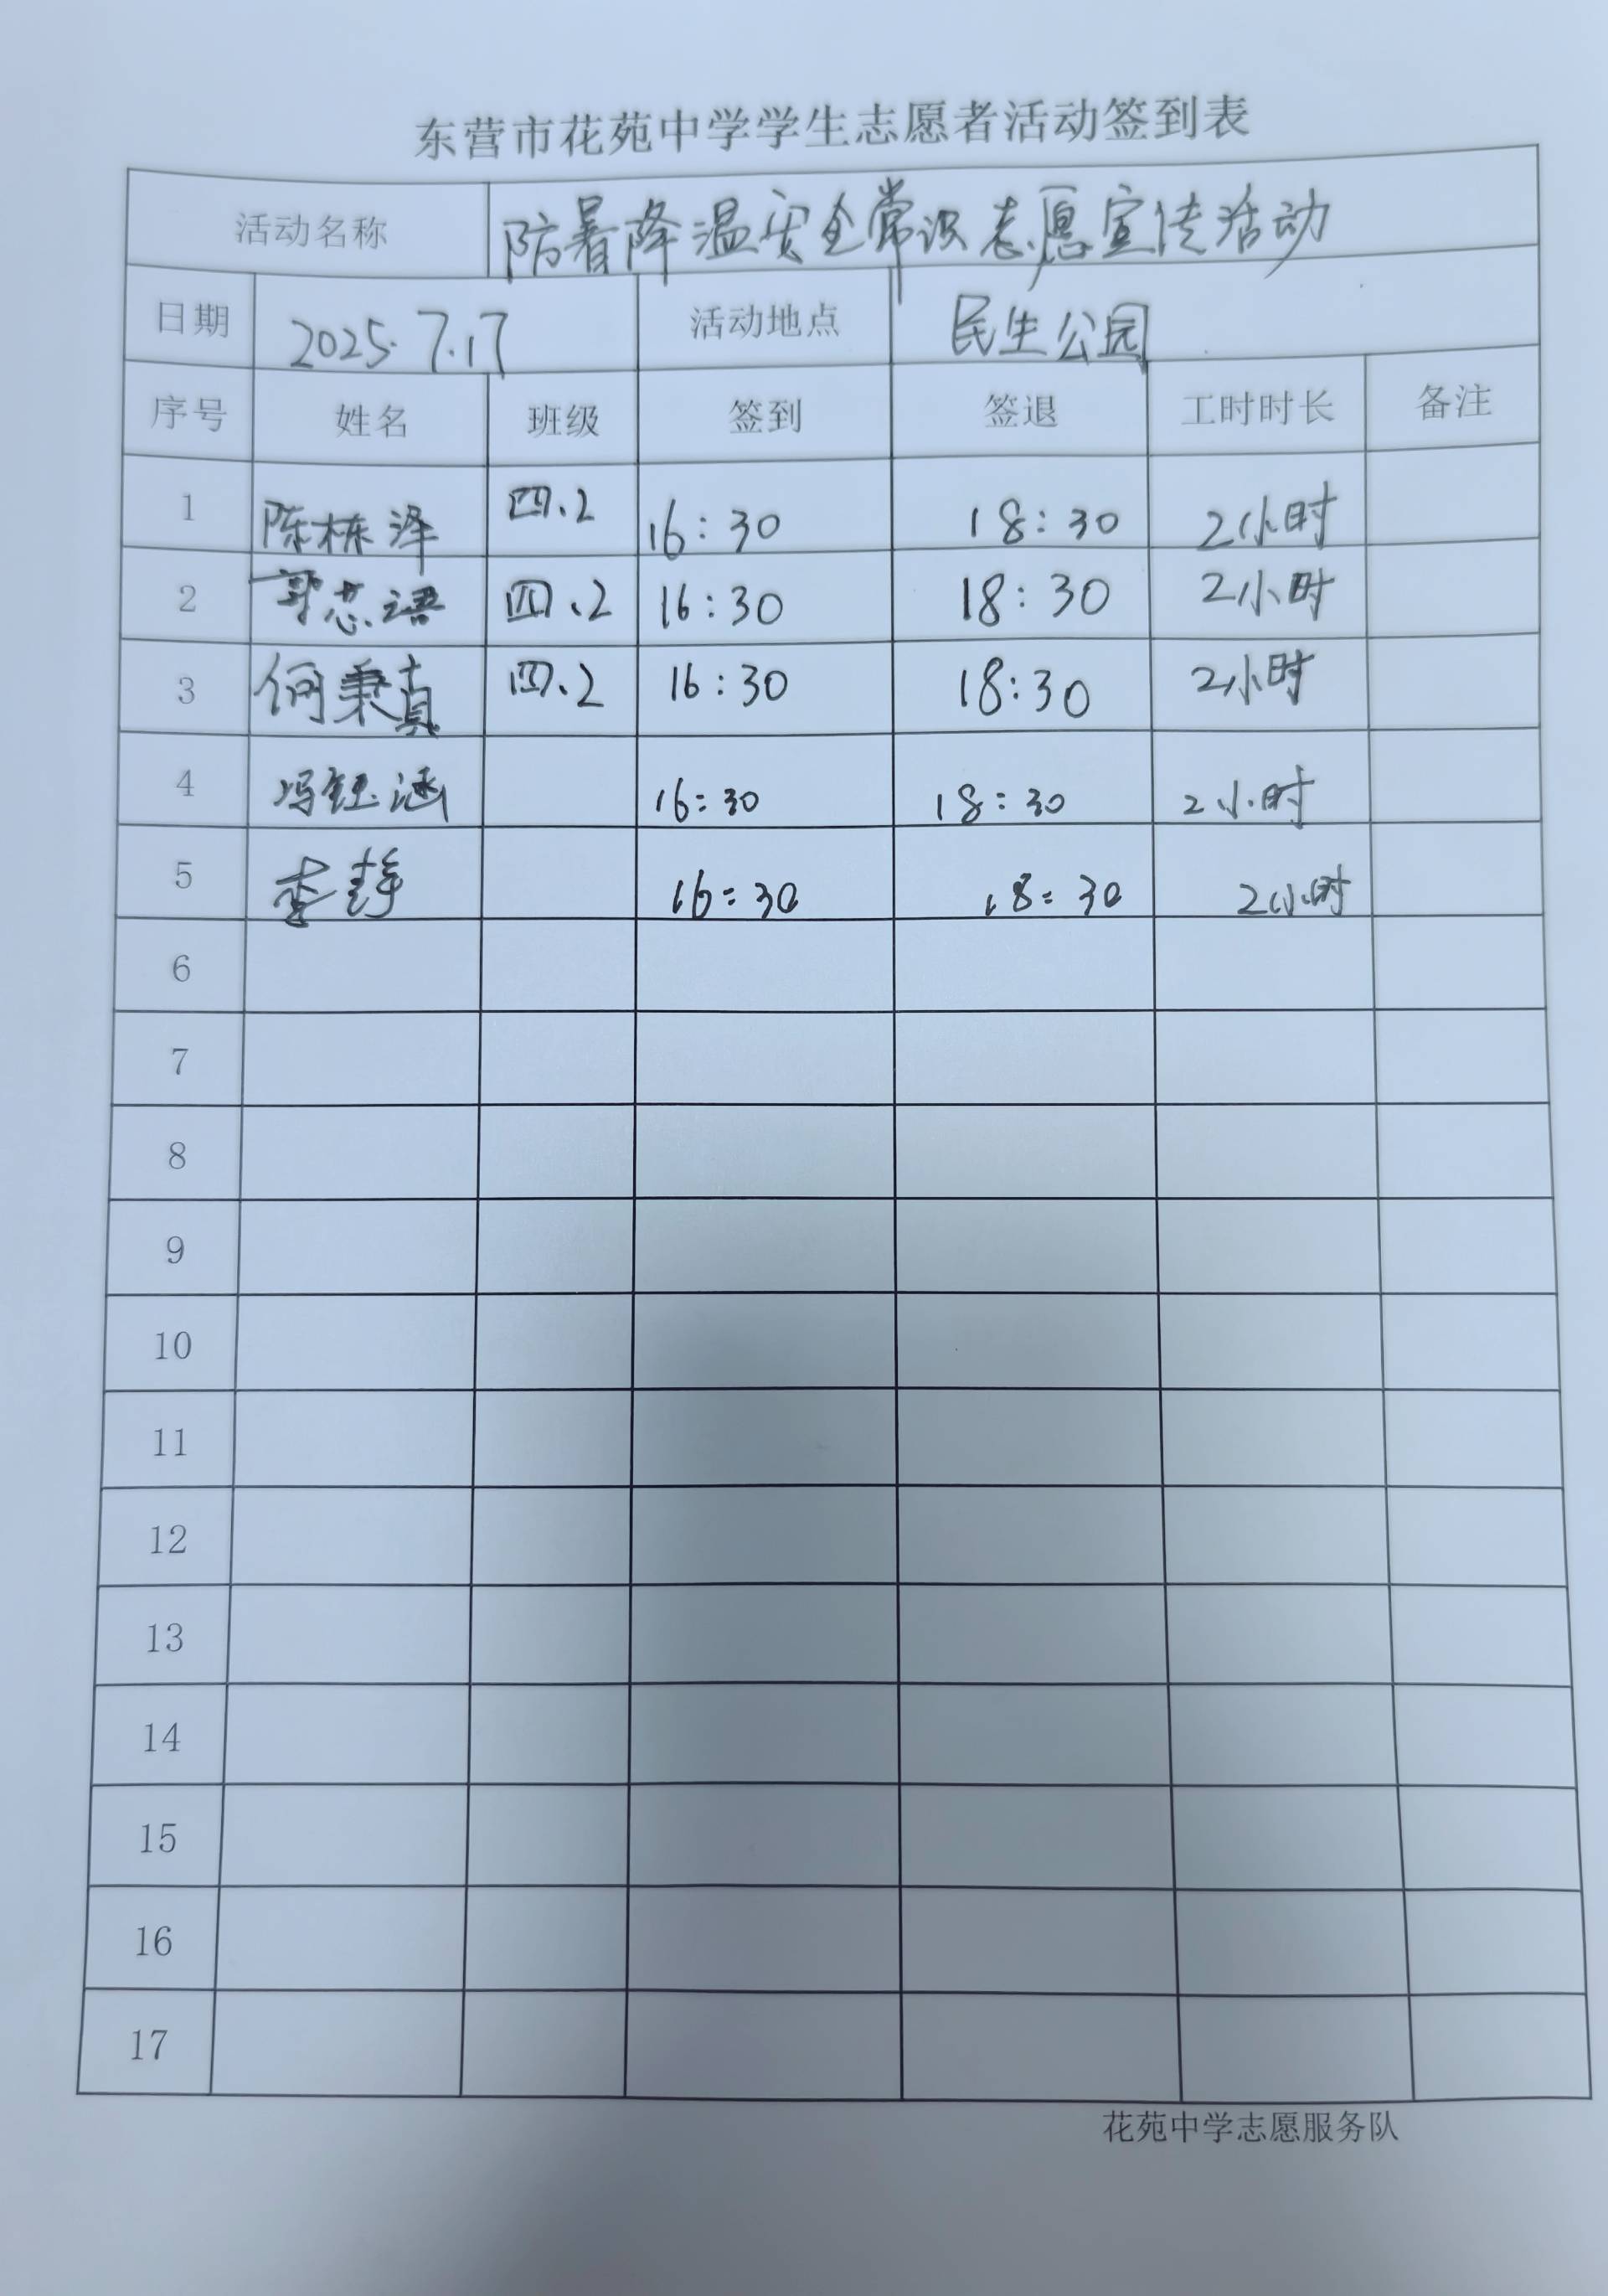 东营市花苑中学学生志愿者活动签到表
活动名称 防暑降温安全常识志愿宣传活动
日期 2025.7.17 活动地点 民生公园
序号 姓名 班级 签到 签退 工时时长 备注
1 陈栋泽 四.2 16:30 18:30 2小时
2 郭芯语 四、2 16:30 18:30 2小时
3 何秉真 四、2 16:30 18:30 2小时
4 冯钰涵 16:30 18:30 2小时
5 李静 16:30 18:30 2小时
6
7
8
9
10
11
12
13
14
15
16
17
花苑中学志愿服务队